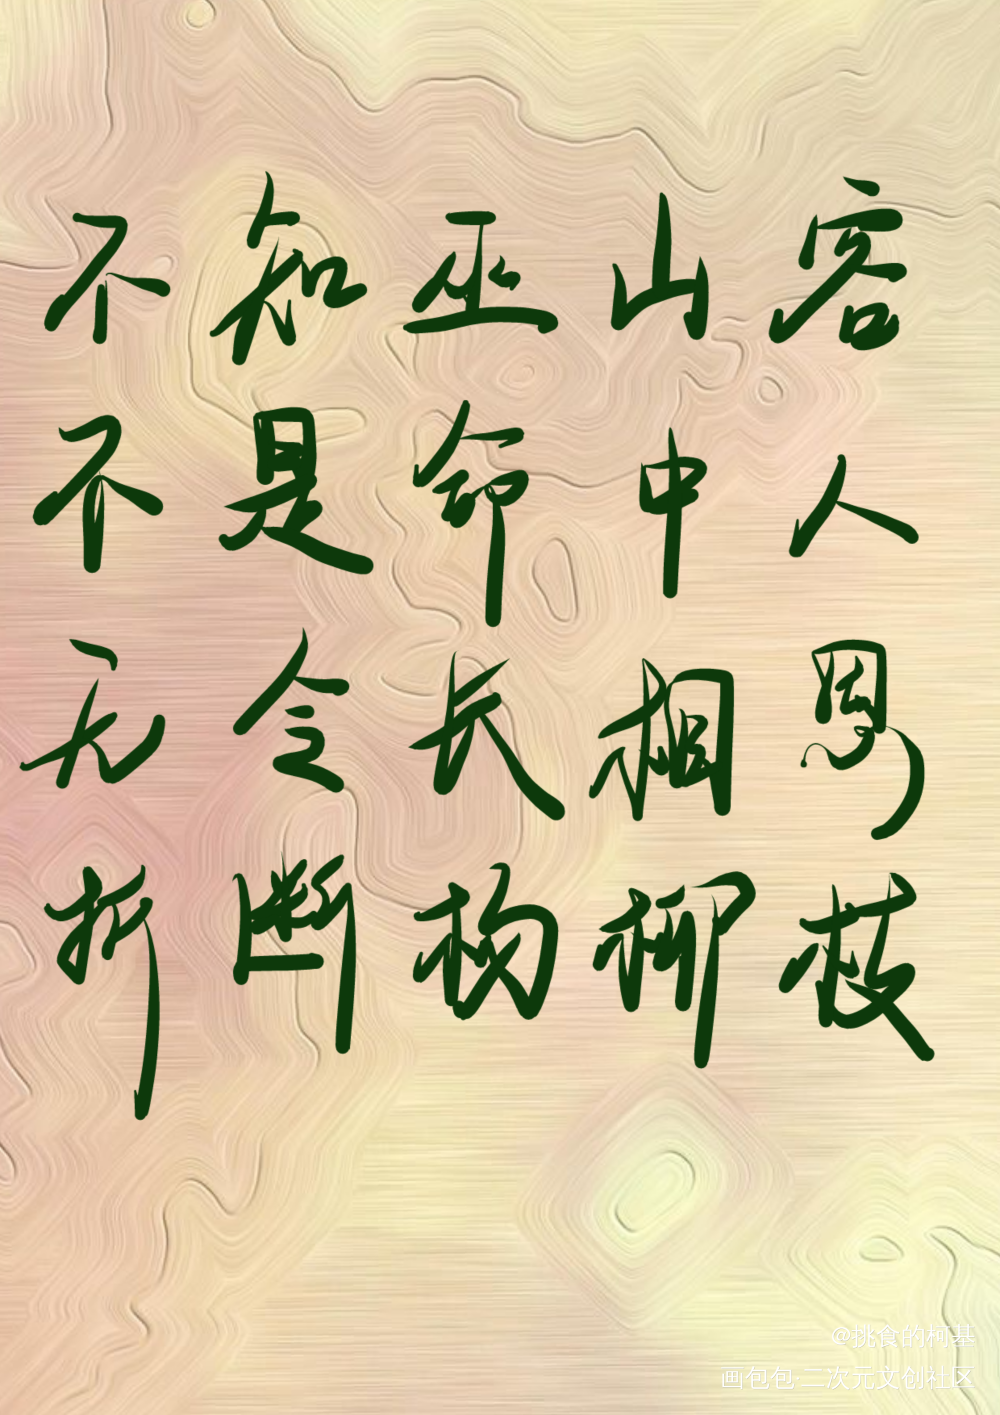 不知巫山客
不是命中人
无令长相思
折断杨柳枝
@挑食的柯基
画包包·二次元文创社区